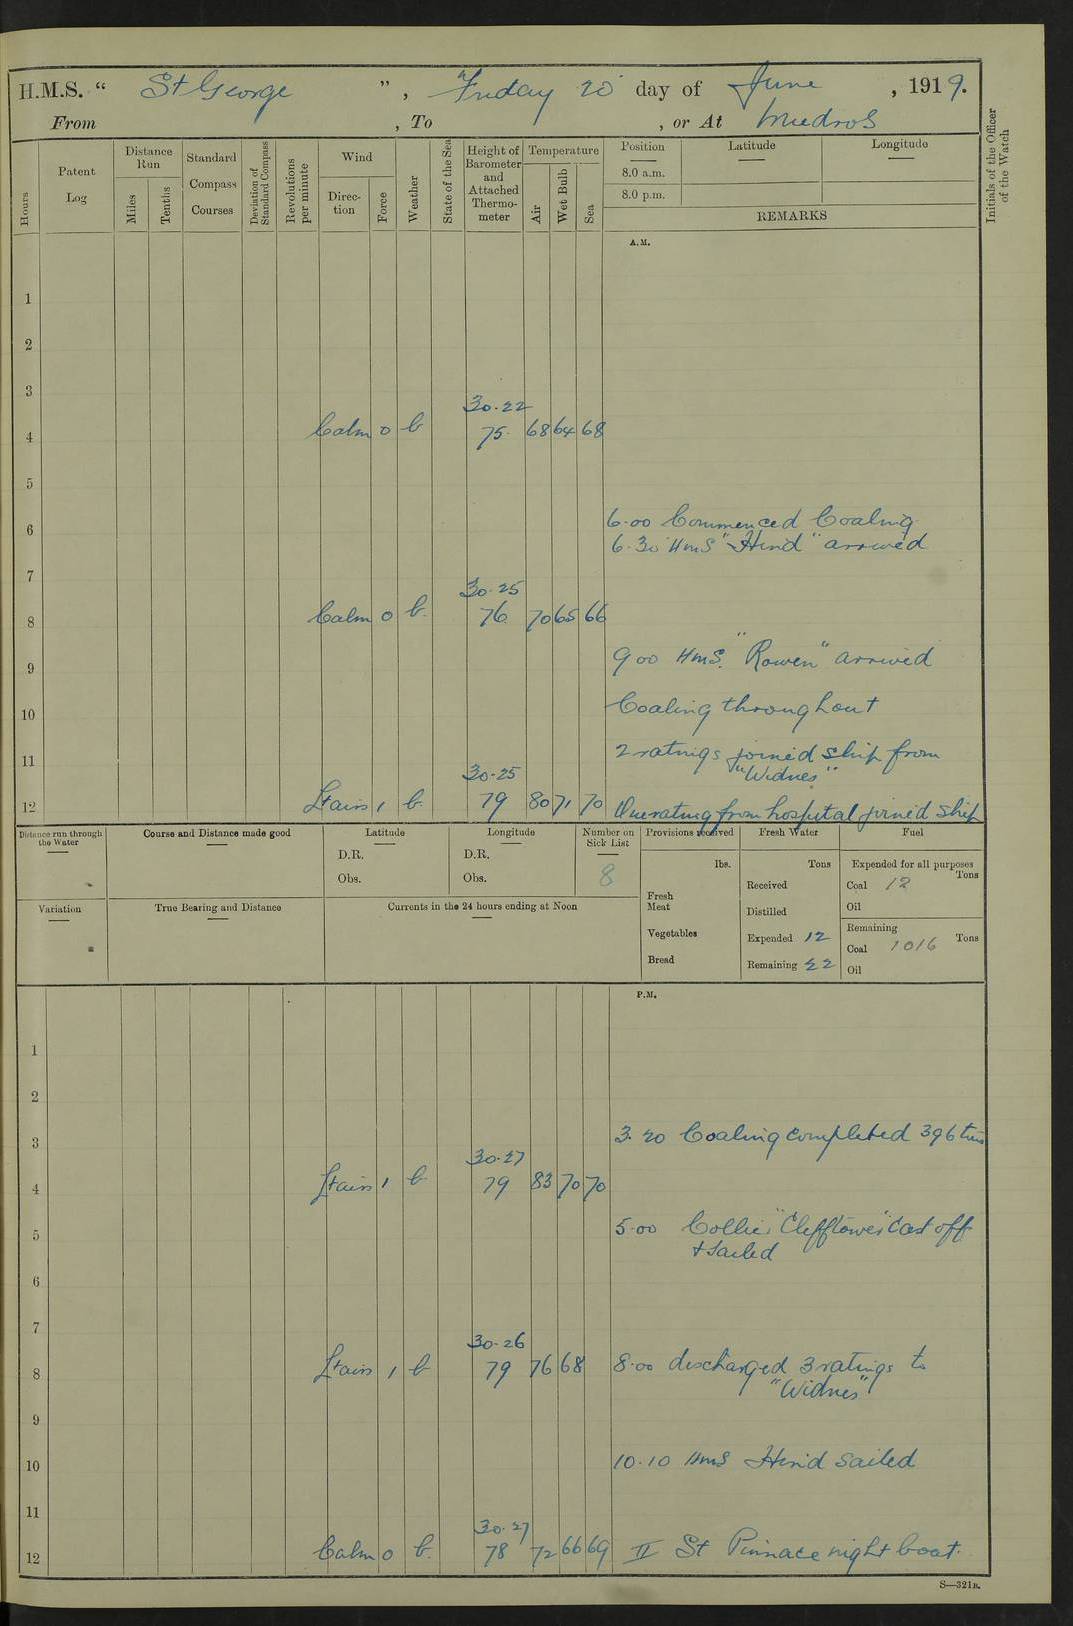 H.M.S. “ St George ” , Friday 20 day of June , 1919.
From , To , or At Mudros
Hours
Patent Log
Distance Run
Miles
Tenths
Standard Compass Courses
Deviation of Standard Compass
Revolutions per minute
Wind
Direction
Force
Weather
State of the Sea
Height of Barometer and Attached Thermometer
Temperature
Air
Wet Bulb
Sea
Position
8.0 a.m.
8.0 p.m.
Latitude
Longitude
REMARKS
Initials of the Officer of the Watch
A.M.
1
2
3
30.22
4 Calm 0 b 75 68 64 68
5
6 6.00 Commenced Coaling
6.30 HMS "Hind" arrived
7
30.25
8 Calm 0 b. 76 70 65 66
9 9 00 HMS. "Rowen" arrived
10 Coaling throughout
11 2 ratings joined ship from
"Widnes"
30.25
12 Lt airs 1 b. 79 80 71 70 One rating from hospital joined ship
Distance run through the Water
Course and Distance made good
Latitude
D.R.
Obs.
Longitude
D.R.
Obs.
Number on Sick List
8
Provisions received
lbs.
Fresh Meat
Vegetables
Bread
Fresh Water
Tons
Received
Distilled
Expended 12
Remaining 22
Fuel
Expended for all purposes
Tons
Coal 12
Oil
Remaining
Coal 1016 Tons
Oil
Variation
True Bearing and Distance
Currents in the 24 hours ending at Noon
P.M.
1
2
3 3.20 Coaling completed 396 tns
30.27
4 Lt airs 1 b 79 83 70 70
5 5.00 Collier "Clefftower" Cast off
& Sailed
6
7
30.26
8 Lt airs 1 b 79 76 68 8.00 discharged 3 ratings to
"Widnes"
9
10 10.10 HMS Hind Sailed
11
30.27
12 Calm 0 b. 78 72 66 69 II St Pinnace night boat.
S—321B.